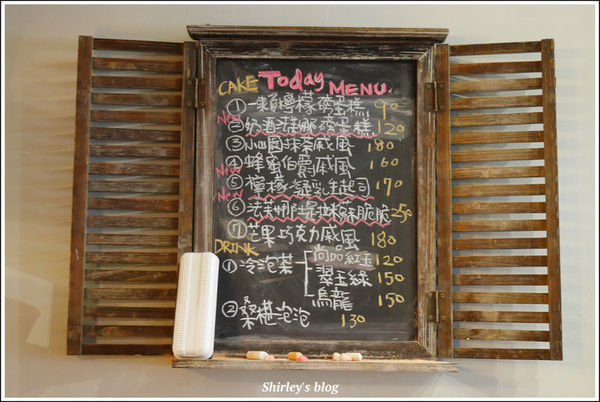 CAKE Today MENU.
① 一顆檸檬磅蛋糕 90
New
② 奶酒瑪娜磅蛋糕 120
③ 小山園抹茶戚風 180
④ 蜂蜜伯爵戚風 160
New
⑤ 檸檬凝乳生起司 170
New
⑥ 法芙娜提拉米蘇脆脆 250
⑦ 芒果巧克力戚風 180
DRINK
① 冷泡茶 尚品紅玉 120
翠玉綠 150
烏龍 150
② 桑椹泡泡 130
Shirley's blog